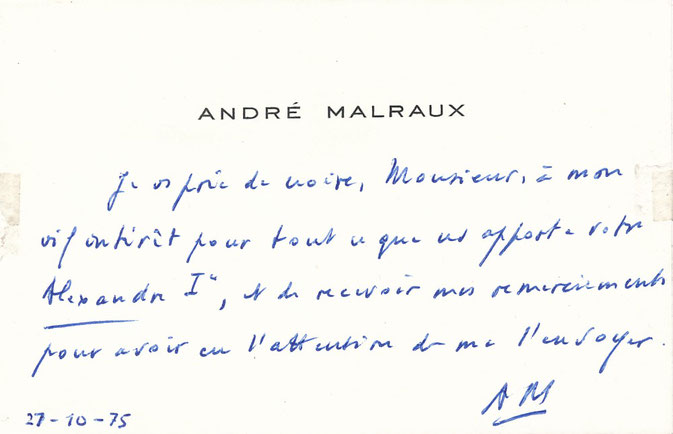 ANDRÉ MALRAUX
Je vs prie de croire, Monsieur, à mon
vif intérêt pour tout ce que ns apporte votre
Alexandre Ier, et de recevoir mes remerciements
pour avoir eu l'attention de me l'envoyer.
AM
27-10-75